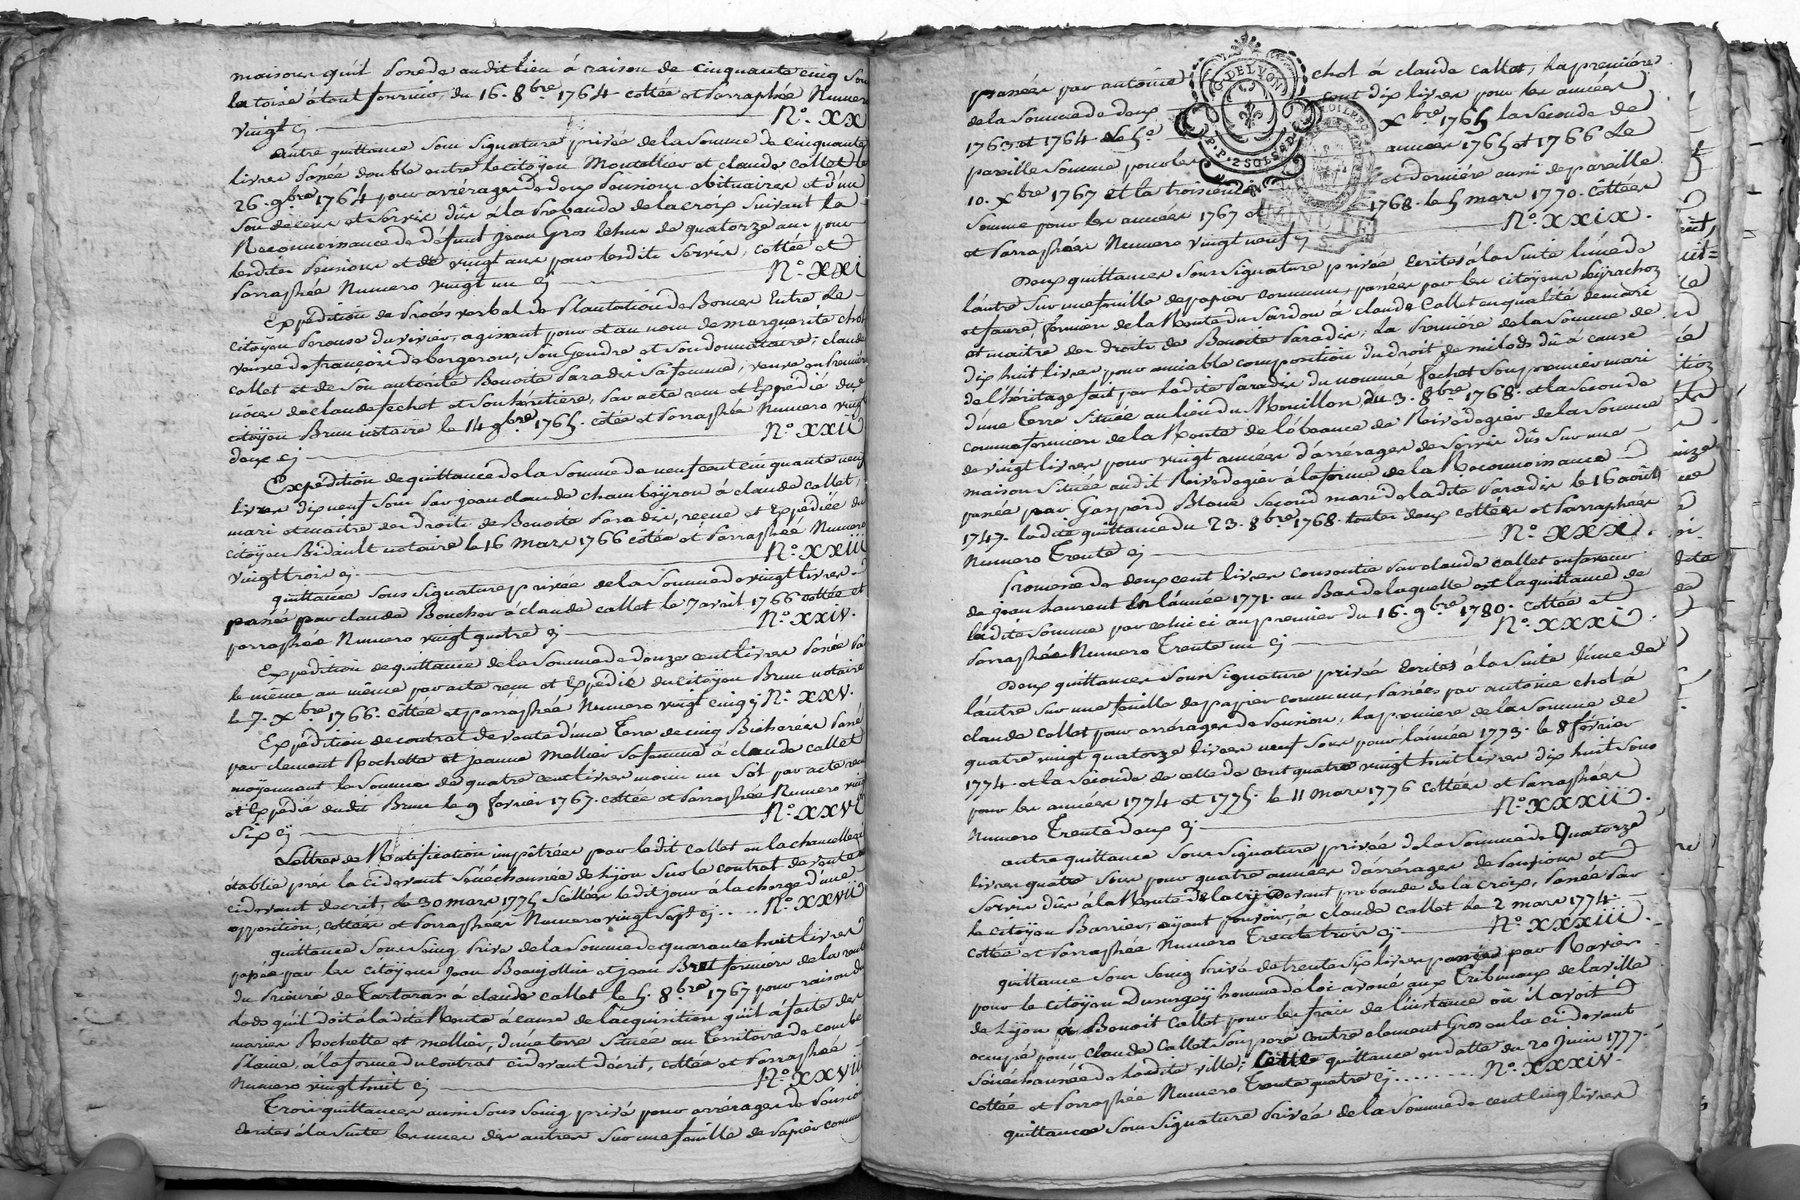 maisons qu'il possede audit lieu à raison de cinquante cinq sou
la toise à tout fournir, du 16. 8bre 1764 cottée et parraphée Numero
vingt cy N.º XX
autre quittance sous signature privée de la somme de cinquante
livres passée double entre le citoyen Montellier et claude callet le
26. 9bre 1764 pour arrérages de deux pensions obituaires et d'un
son deniers et servis dûs à la Prebande de la croix suivant la
Reconnoissance de défunt jean Gros lehus de quatorze ans pour
lesdites pensions et de vingt ans pour lesdits servis, cottée et
Parraphée Numero vingt un cy N.º XXI
Expédition de Procés verbal de Plantation de Bornes Entre Le
citoyen Perouse du vivier, agissant pour et au nom de marguerite chol
veuve de françois de bergeron, son Gendre et son donnataire; claude
callet et de son autorité Benoite Paradis sa femme, veuve en Premiére
noces de claude fechot et son héritiére, par acte reçu et Expédié du
citoyen Brun notaire le 14 9bre 1765. cotée et Parraphée Numero vingt
deux cy N.º XXII
Expédition de quittance de la somme de neuf cent cinquante neuf
livres dix neuf sous Par jean claude chambeyron à claude callet,
mari et maitre des droits de Benoite Paradis, recue et Expédiée du
citoyen Bidault notaire le 16 Mars 1766 cotée et Parraphée Numero
vingt trois cy N.º XXIII
quittance sous signature privée de la somme de vingt livres
passée par claude Boucher à claude callet le 7 avril 1766 cottée et
parraphée Numero vingt quatre cy N.º XXIV.
Expédition de quittance de la somme de douze cent livres Passée Par
le même au même par acte recu et Expédié du citoyen Brun notaire
le 7. Xbre 1766. cottée et parraphée Numero vingt cinq cy N.º XXV.
Expédition de contrat de vente d'une Terre de cinq Bicherées Passé
par clement Rochette et jeanne Mellier sa femme à claude callet
moyennant la somme de quatre cent livres moin un sol par acte recu
et Expédié dudit Brun le 9 fevrier 1767. cottée et Parraphée Numero vingt
six cy N.º XXVI
Lettres de Ratification impétrées par ledit callet en la chancellerie
établie pres la cidevant sénéchaussée de Lyon sur le contrat de vente
cidevant décrit, du 30 mars 1775 scellées ledit jour à la charge d'une
opposition, cottées et Parraphées Numero vingt sept cy..... N.º XXVII
quittance sous seing Privé de la somme de quarante huit livres
passée par les citoyens jean Beaujollin et jean Brot fermiers de la rente
du Prieuré de Tartaras à claude callet le 5. 8bre 1767 pour raison de
lods qu'il doit à ladite Rente à cause de l'acquisition qu'il a faite des
mariés Rochette et mellier, d'une terre située au Territoire de combe
Plaine, à la forme du contrat cidevant décrit, cottée et Parraphée
Numero vingt huit cy N.º XXVII
Trois quittances aussi sous seing privé pour arrérages de Pension
écrites à la suite les unes des autres sur une feuille de Papier commun
passées par antoine chol à claude callet, La premiére
de la somme de deux cent dix livres pour les années
1763 et 1764 Le 5e Xbre 1765 la seconde de
pareille somme pour les années 1765 et 1766 Le
10. Xbre 1767 et la troisieme et derniére aussi de pareille
somme pour les années 1767 et 1768. le 5 mars 1770. cottées
et Parraphées Numero vingt neuf cy N.º XXIX.
G. DE LYON
P. P. 2 SOLS 8 D.
MINUTE
Deux quittances sous signature privée écrites à la suite l'une de
l'autre sur une feuille de papier commun, passées par les citoyens peyrachon
et faure, fermiers de la Rente du Sardon à claude callet en qualité de mari
et maitre des droits de Benoite Paradis, La Premiére de la somme de
dix huit livres pour amiable composition du droit de milods dû à cause
de l'héritage fait par ladite Paradis du nommé fechot son premier mari
d'une Terre située au lieu du Mouillon du 3. 8bre 1768. et la seconde
comme fermiers de la Rente de léobeance de Rivedegier de la somme
de vingt livres pour vingt années d'arrérages de servis dûs sur une
maison située audit Rivedegier à la forme de la Reconnoissance
passée par Gaspard Blanc second mari de ladite Paradis le 16 août
1747. ladite quittance du 23. 8bre 1768. toutes deux cottées et Parraphées
Numero Trente cy N.º XXX.
Promesse de deux cent livres consentie par claude callet en faveur
de jean Laurent En l'année 1771. au Bas de laquelle est la quittance de
ladite somme par celui ci au premier du 16. 9bre 1780. cottée et
Parraphée Numero Trente un cy N.º XXXI.
Deux quittances sous signature privée Ecrites à la suite l'une de
l'autre sur une feuille de papier commun, Passées par antoine chol à
claude callet pour arrérages de Pension, La premiere de la somme de
quatre vingt quatorze livres neuf sous pour l'année 1773. le 8 février
1774. et la seconde de celle de cent quatre vingt huit livres dix huit sous
pour les années 1774 et 1775. le 11 mars 1776 cottées et Parraphées
Numero Trente deux cy N.º XXXII.
autre quittance sous signature privée de la somme de Quatorze
livres quatre sous pour quatre années d'arrérages de Pensions et
Servis dûs à la Rente de la cy devant prebande de la croix, Passée Par
le citoyen Barrier, ayant pouvoir, à claude callet Le 2 mars 1774
cottée et Parraphée Numero Trente trois cy N.º XXXIII.
quittance sous seing Privé de trente six livres passée par Ravier
pour le citoyen Dusurgey homme de loi avoué aux Tribunaux de la ville
de Lyon à Benoit Callet pour les frais de l'instance où il avoit
occupé pour claude Callet son pere contre clement Gros en la cidevant
Sénéchaussée de ladite ville; Cette quittance en datte du 20 juin 1777.
cottée et Parraphée Numero Trente quatre cy........ N.º XXXIV.
quittance sous signature Privée de la somme de cent cinq livres